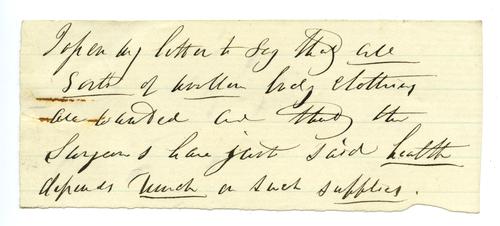 I open my letter to say that all
sorts of woollen body clothing
are wanted and that the
Surgeons have just said health
depends much on such supplies.